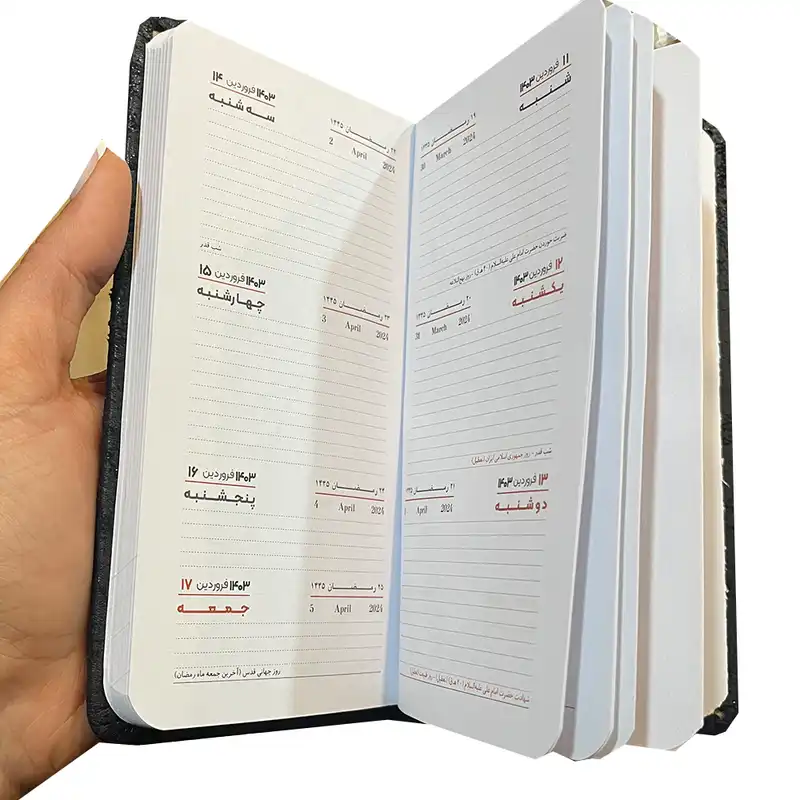 ۱۱ فروردین ۱۴۰۳
شنبه
۱۹ رمضان ۱۴۴۵
30 March 2024
ضربت خوردن حضرت امام علی علیه‌السلام (۴۰ ه‍.ق) - روز نهج‌البلاغه
۱۲ فروردین ۱۴۰۳
یکشنبه
۲۰ رمضان ۱۴۴۵
31 March 2024
شب قدر - روز جمهوری اسلامی ایران (تعطیل)
۱۳ فروردین ۱۴۰۳
دوشنبه
۲۱ رمضان ۱۴۴۵
1 April 2024
شهادت حضرت امام علی علیه‌السلام (۴۰ ه‍.ق) (تعطیل) - روز طبیعت (تعطیل)
۱۴۰۳ فروردین ۱۴
سه شنبه
۲۲ رمضان ۱۴۴۵
2 April 2024
شب قدر
۱۴۰۳ فروردین ۱۵
چهارشنبه
۲۳ رمضان ۱۴۴۵
3 April 2024
۱۴۰۳ فروردین ۱۶
پنجشنبه
۲۴ رمضان ۱۴۴۵
4 April 2024
۱۴۰۳ فروردین ۱۷
جمعه
۲۵ رمضان ۱۴۴۵
5 April 2024
روز جهانی قدس (آخرین جمعه ماه رمضان)